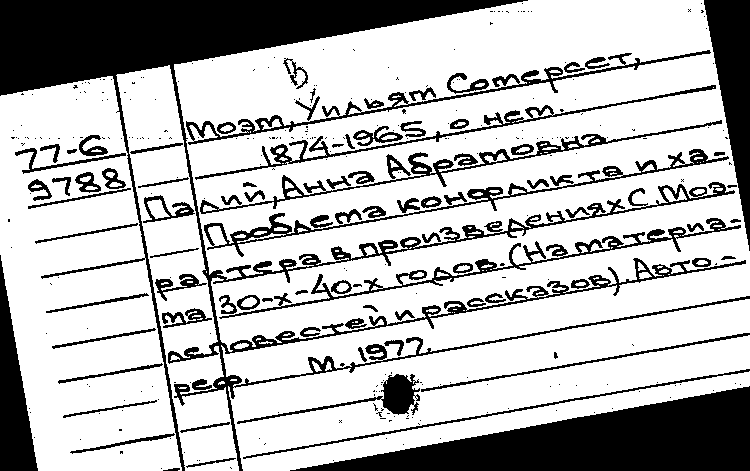 В
Моэм, Уильям Сомерсет,
77-6
1874-1965, о нем.
9788
Палий, Анна Абрамовна
Проблема конфликта и ха-
рактера в произведениях С. Моэ-
ма 30-х-40-х годов. (На материа-
ле повестей и рассказов). Авто-
реф. М., 1977.